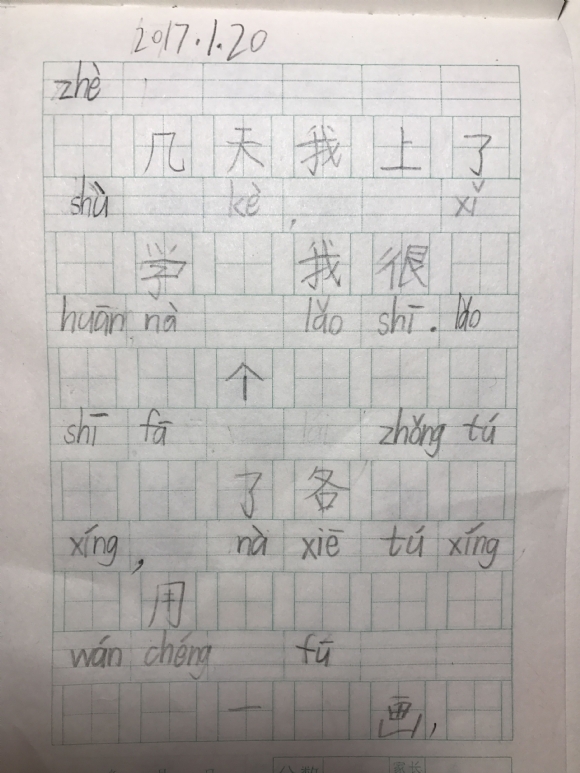 2017.1.20
zhè
几天我上了
shù kè, xǐ
学我很
huān nà lǎo shī. lǎo
个
shī fā zhǒng tú
了各
xíng, nà xiē tú xíng
用
wán chéng fú
一画,